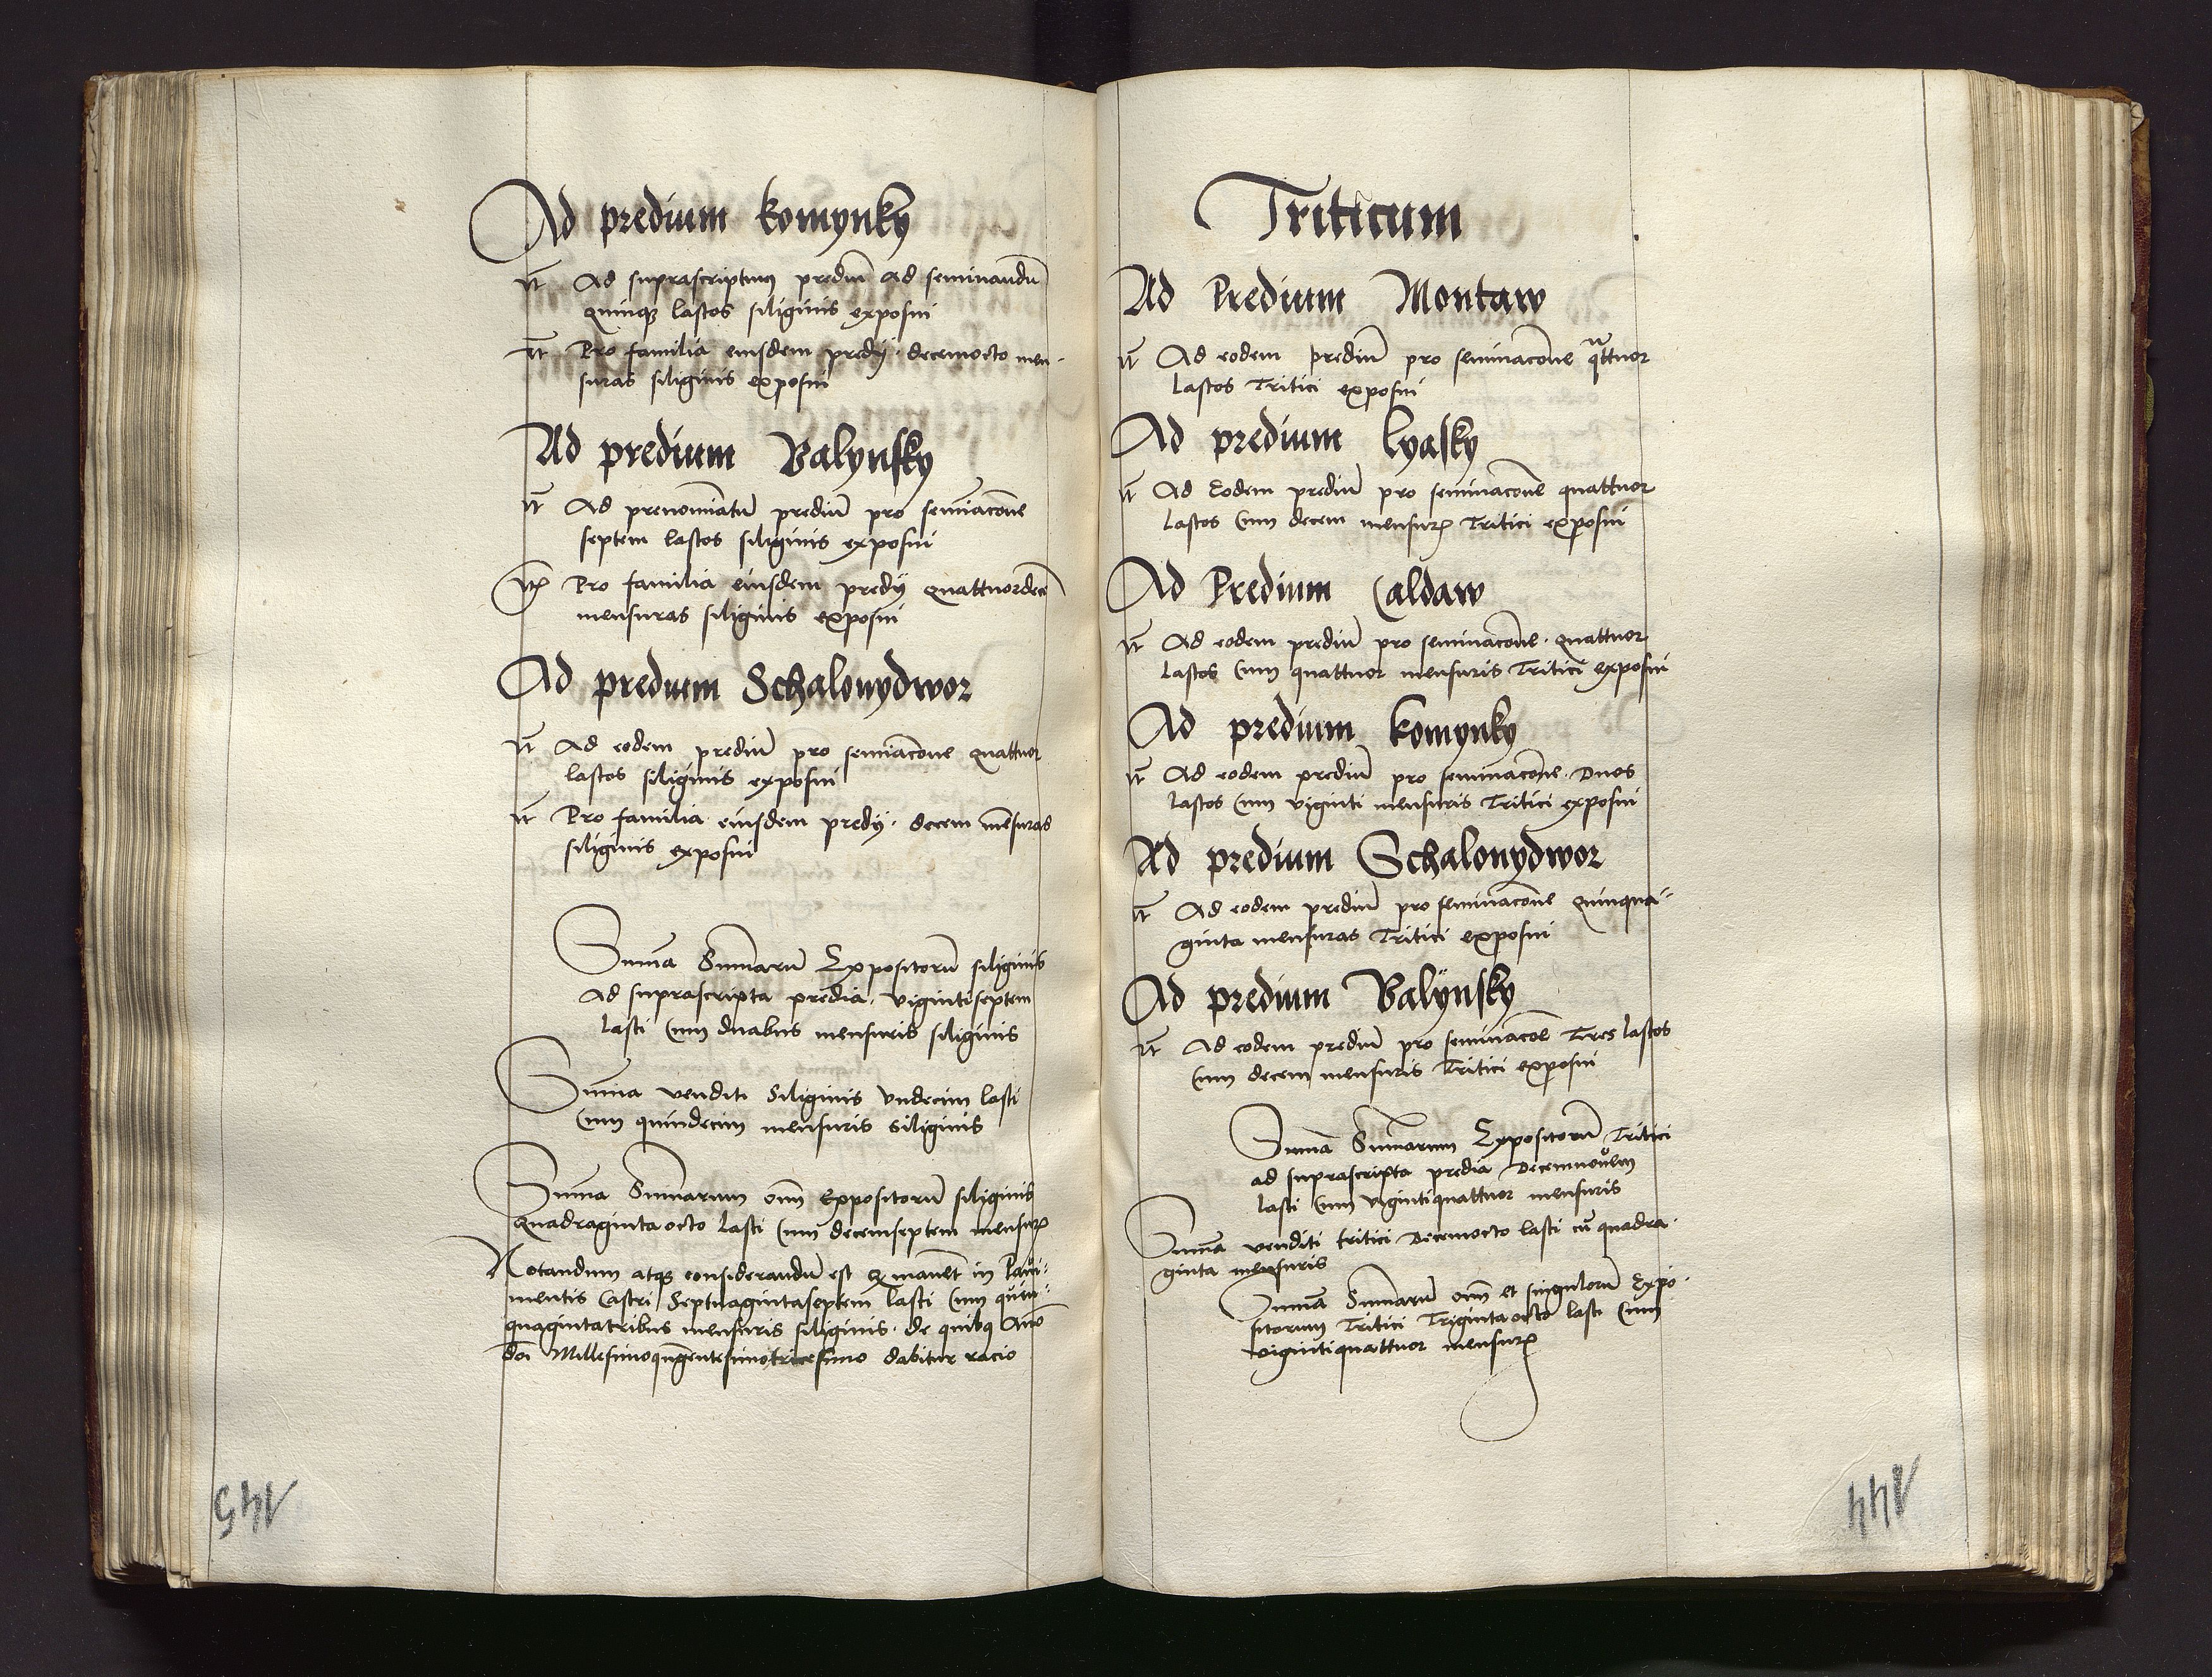 Ad predium komynky
It Ad suprascriptum prediū ad seminandū
quinqȝ lastos siliginis exposui
It Pro familia eiusdem predÿ. decemocto men-
suras siliginis exposui
Ad predium Balynsky
It Ad prenominatū prediū pro seminacōne
septem lastos siliginis exposui
Itē Pro familia eiusdem predÿ quattuordecē
mensuras siliginis exposui
Ad predium Schalonydwor
It Ad eodem prediū pro seminacōne quattuor
lastos siliginis exposui
It Pro familia eiusdem predÿ. decem mēsuras
siliginis exposui
Summa Summarū Expositorū siliginis
Ad suprascripta predia. vigintiseptem
lasti Cum duabus mensuris siliginis
Summa venditi Siliginis Vndecim lasti
Cum quindecim mensuris siliginis
Summa Summarum omī Expositorū siliginis
Quadragintaocto lasti Cum decemseptem mensur
Notandum atqȝ considerandū est q manēt in Pavi-
mentis Castri Septuagintaseptem lasti Cum quin-
quagintatribus mensuris siliginis. de quibq Anō
dnī Millesimoqngentesimotricesimo dabitur racio
145
Triticum
Ad Predium Montaw
It Ad eodem prediū pro seminacōne qttuor
lastos Tritici exposui
Ad predium lyasky
It Ad Eodem prediū pro seminacōne quattuor
lastos Cum decem mensur Tritici exposui
Ad Predium Caldaw
It Ad eodem prediū pro seminacōne. quattuor
lastos Cum quattuor mensuris Tritici exposui
Ad predium komynky
It Ad eodem prediū pro seminacōne. Duos
lastos Cum viginti mensuris Tritici exposui
Ad predium Schalonydwor
It Ad eodem prediū pro seminacōne quinqua-
ginta mensuras Tritici exposui
Ad predium Balÿnsky
It Ad eodem prediū pro seminacōe Tres lastos
Cum decem mensuris Tritici exposui
Summa Summarum Expositorū Tritici
ad suprascripta predia Decemnovem
lasti Cum vigintiquattuor mensuris
Summa venditi tritici Decemocto lasti cū quadra-
ginta mensuris
Summa Summarū omī et singulorū Expo-
sitorum Tritici Trigintaocto lasti Cum
vigintiquattuor mensur
144